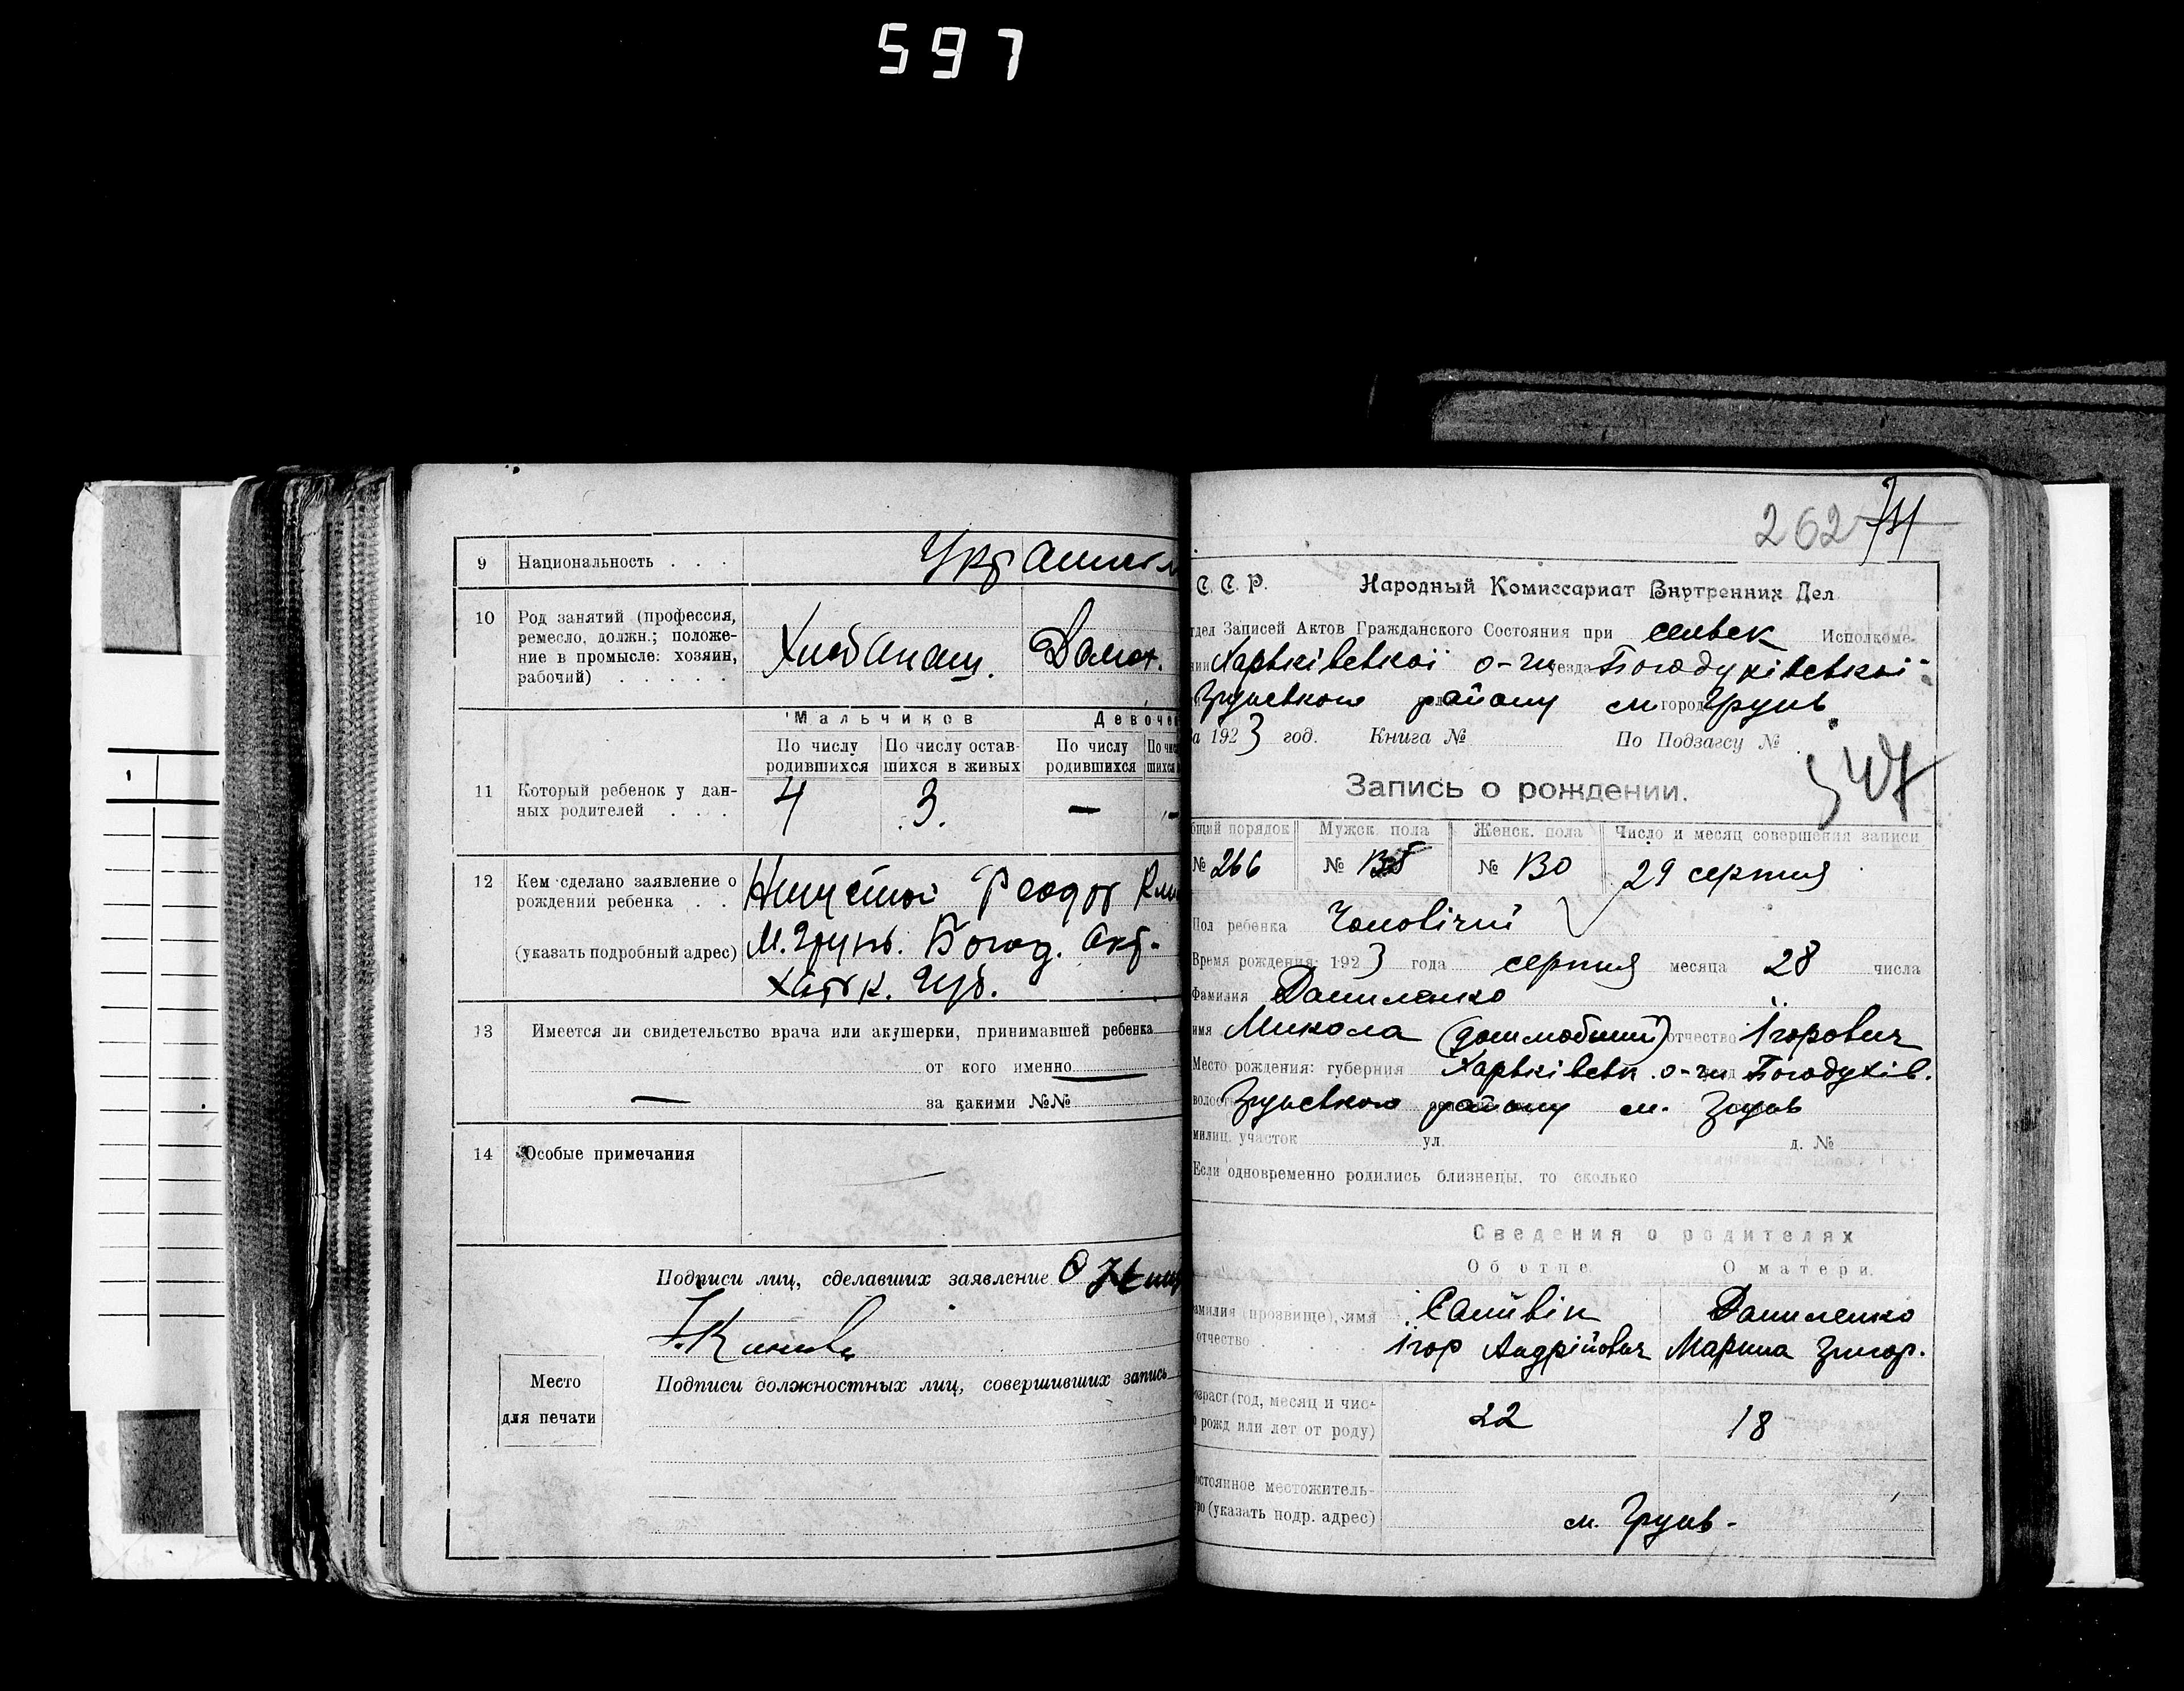 597
9 Национальность . . .
10 Род занятий (профессия,
ремесло, должн.; положе-
ние в промысле: хозяин,
рабочий) . . . . .
Домог.
Мальчиков Девоче
По числу родившихся По числу остав-шихся в живых По числу родившихся
11 Который ребенок у дан-
ных родителей . . .
4 3. — —
12 Кем сделано заявление о
рождении ребенка . .
(указать подробный адрес)
Феодор
М. Грунь. Богод. Окр.
Харьк. Губ.
13 Имеется ли свидетельство врача или акушерки, принимавшей ребенка
от кого именно —
— за какими №№
14 Особые примечания
Подписи лиц, сделавших заявление
Место
для печати
Подписи должностных лиц, совершивших запись
262
С. С. Р. Народный Комиссариат Внутренних Дел
тдел Записей Актов Гражданского Состояния при сельвик Исполкоме
Харьківської о-ги уезда Богодухівської
Грунського району м. город Грунь
а 1923 год. Книга № По Подзагсу №
347
Запись о рождении.
бщий порядок Мужск. пола Женск. пола Число и месяц совершения записи
№ 266 № № 130 29 серпня
Пол ребенка Чоловічий
Время рождения: 1923 года серпня месяца 28 числа
Фамилия Даниленко
имя Микола отчество Ігорович
Место рождения: губерния Харьківськ. о-ги Богодухів.
волость Грунського району м. Грунь
милиц. участок ул. д. №
Если одновременно родились близнецы, то сколько
Сведения о родителях
Об отце. О матери.
амилия (прозвище), имя
отчество
Даниленко
Ігор Андрійович Марина Григор.
озраст (год, месяц и чис-
рожд или лет от роду)
22 18
остоянное местожитель-
во (указать подр. адрес)
м. Грунь -